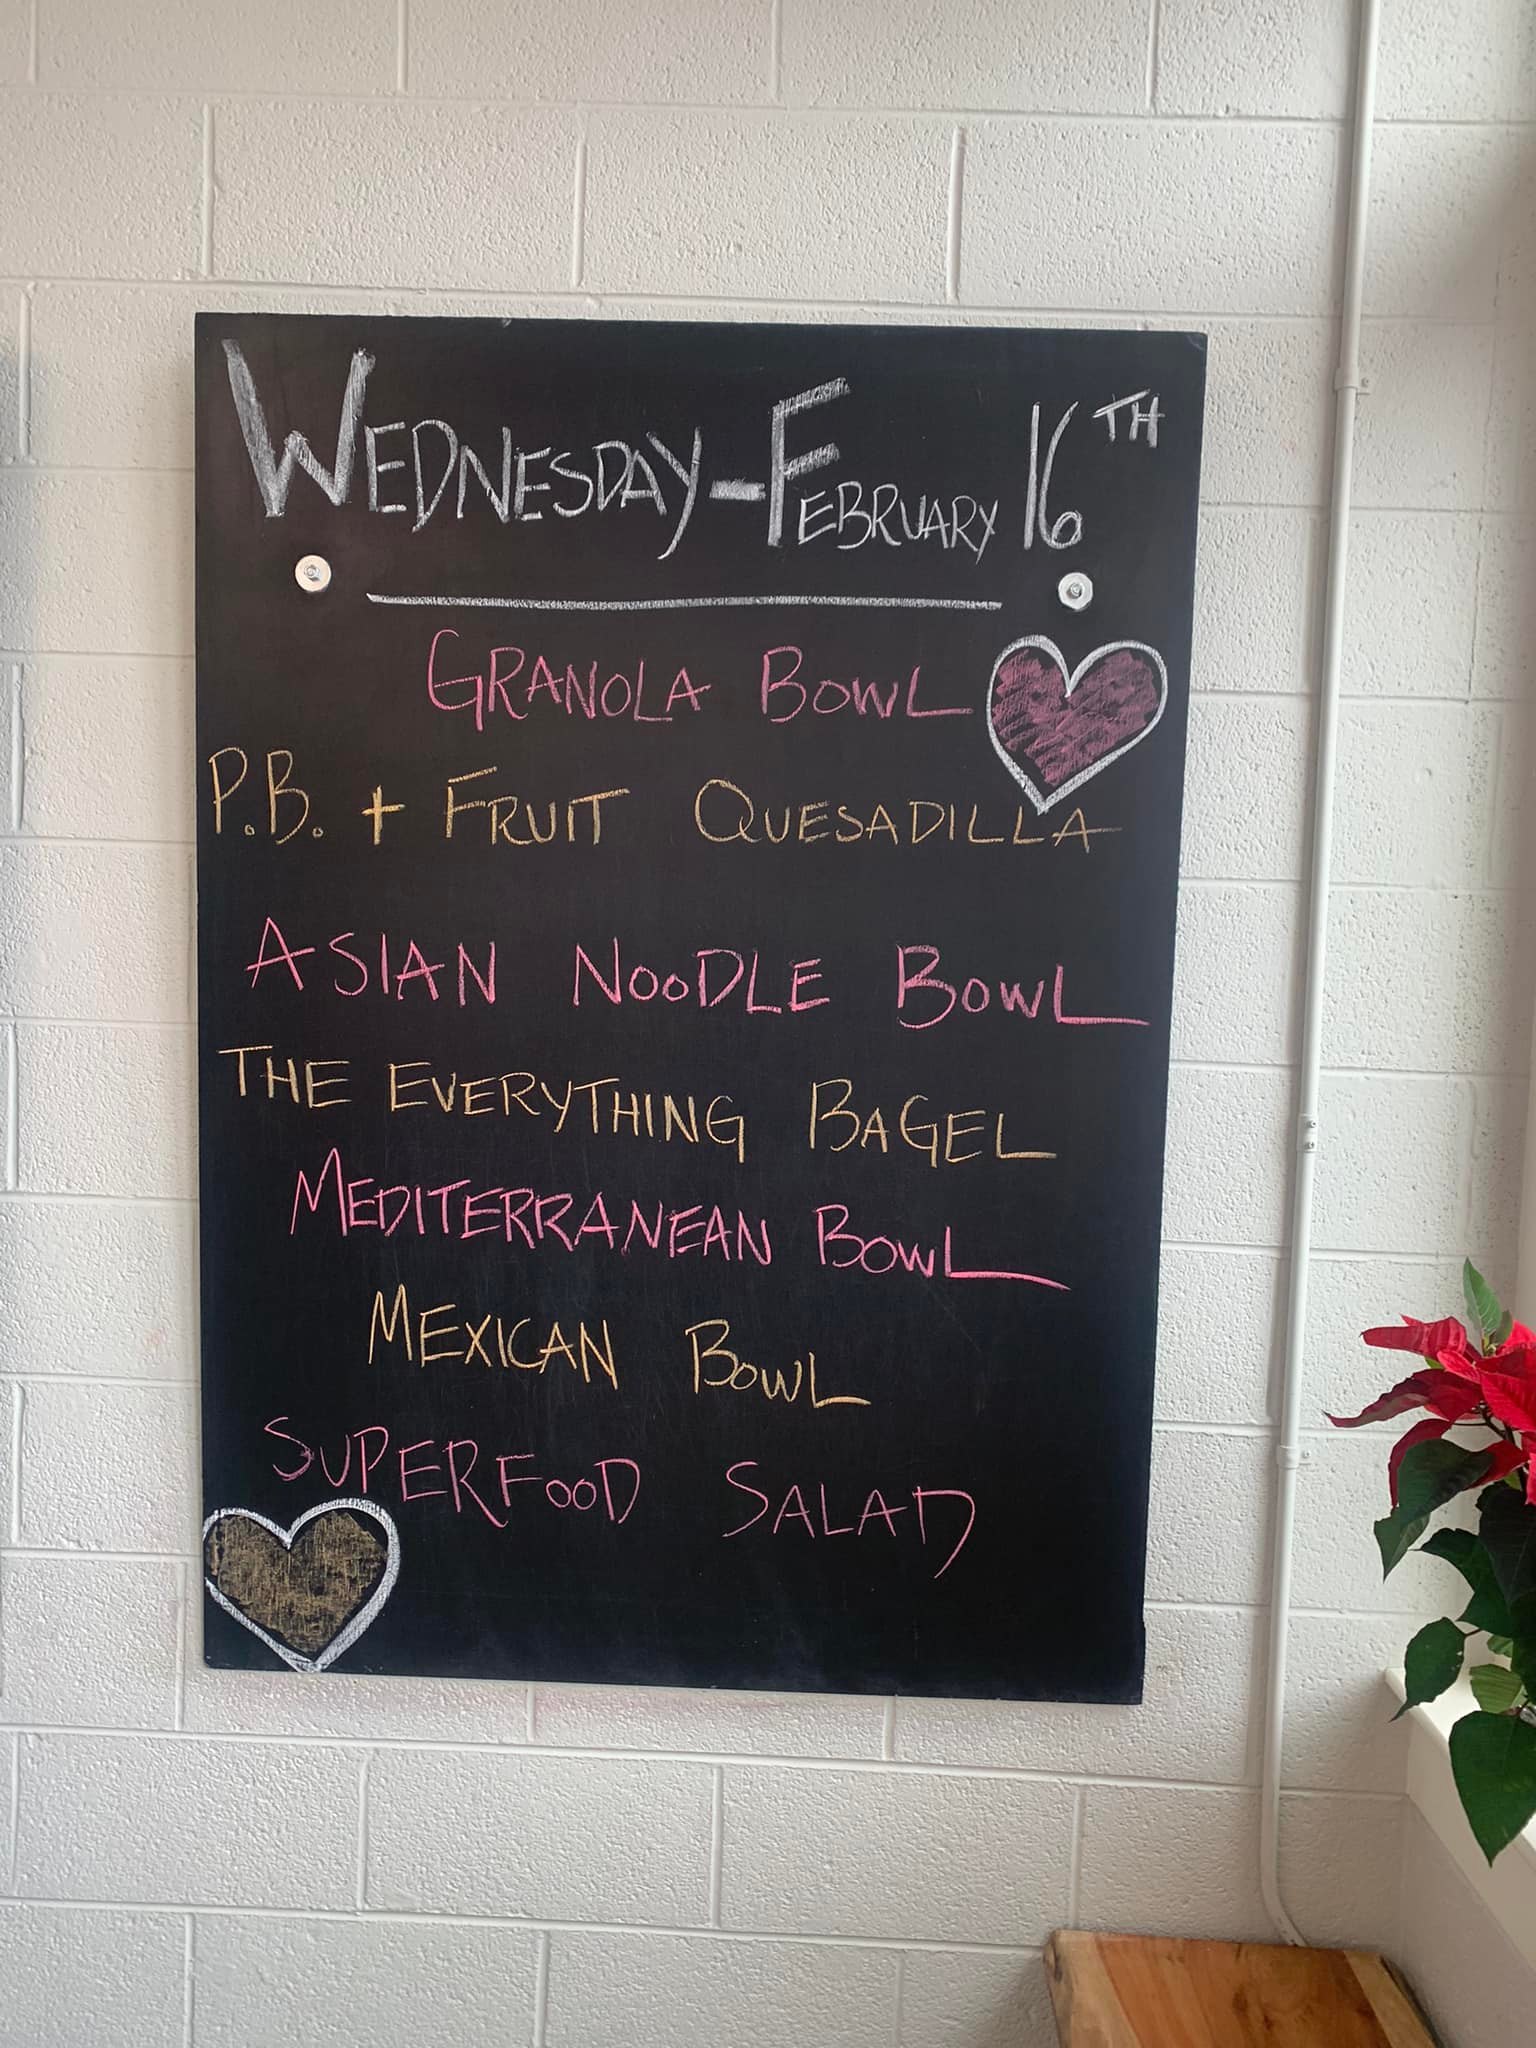 WEDNESDAY-FEBRUARY 16TH
GRANOLA BOWL
P.B. + FRUIT QUESADILLA
ASIAN NOODLE BOWL
THE EVERYTHING BAGEL
MEDITERRANEAN BOWL
MEXICAN BOWL
SUPERFOOD SALAD